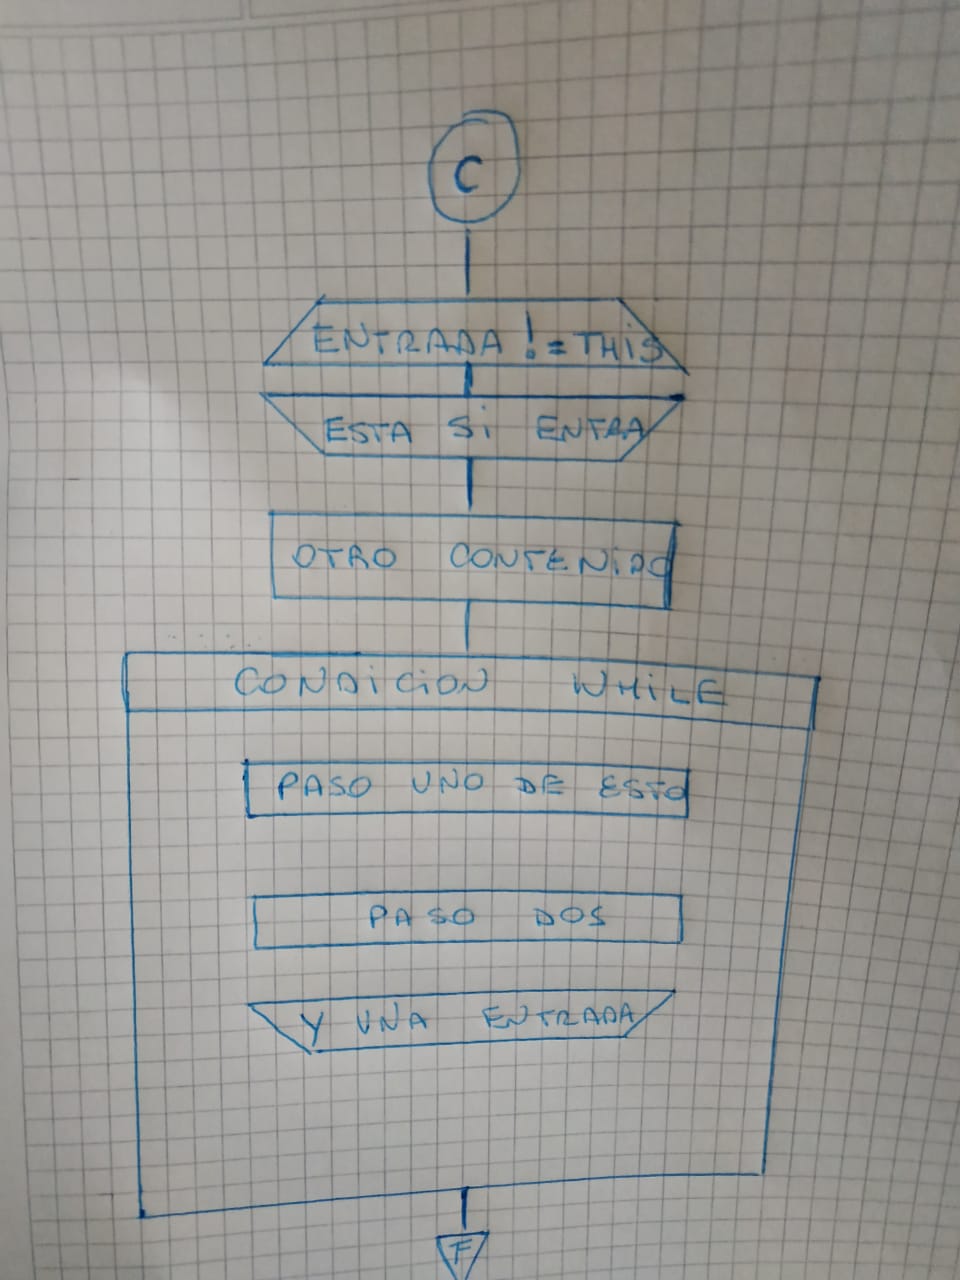 C
ENTRADA != THiS
ESTA Si ENTRA
OTRO CONTENiDO
CONDiCiON WHiLE
PASO UNO DE ESTO
PASO DOS
Y UNA ENTRADA
F